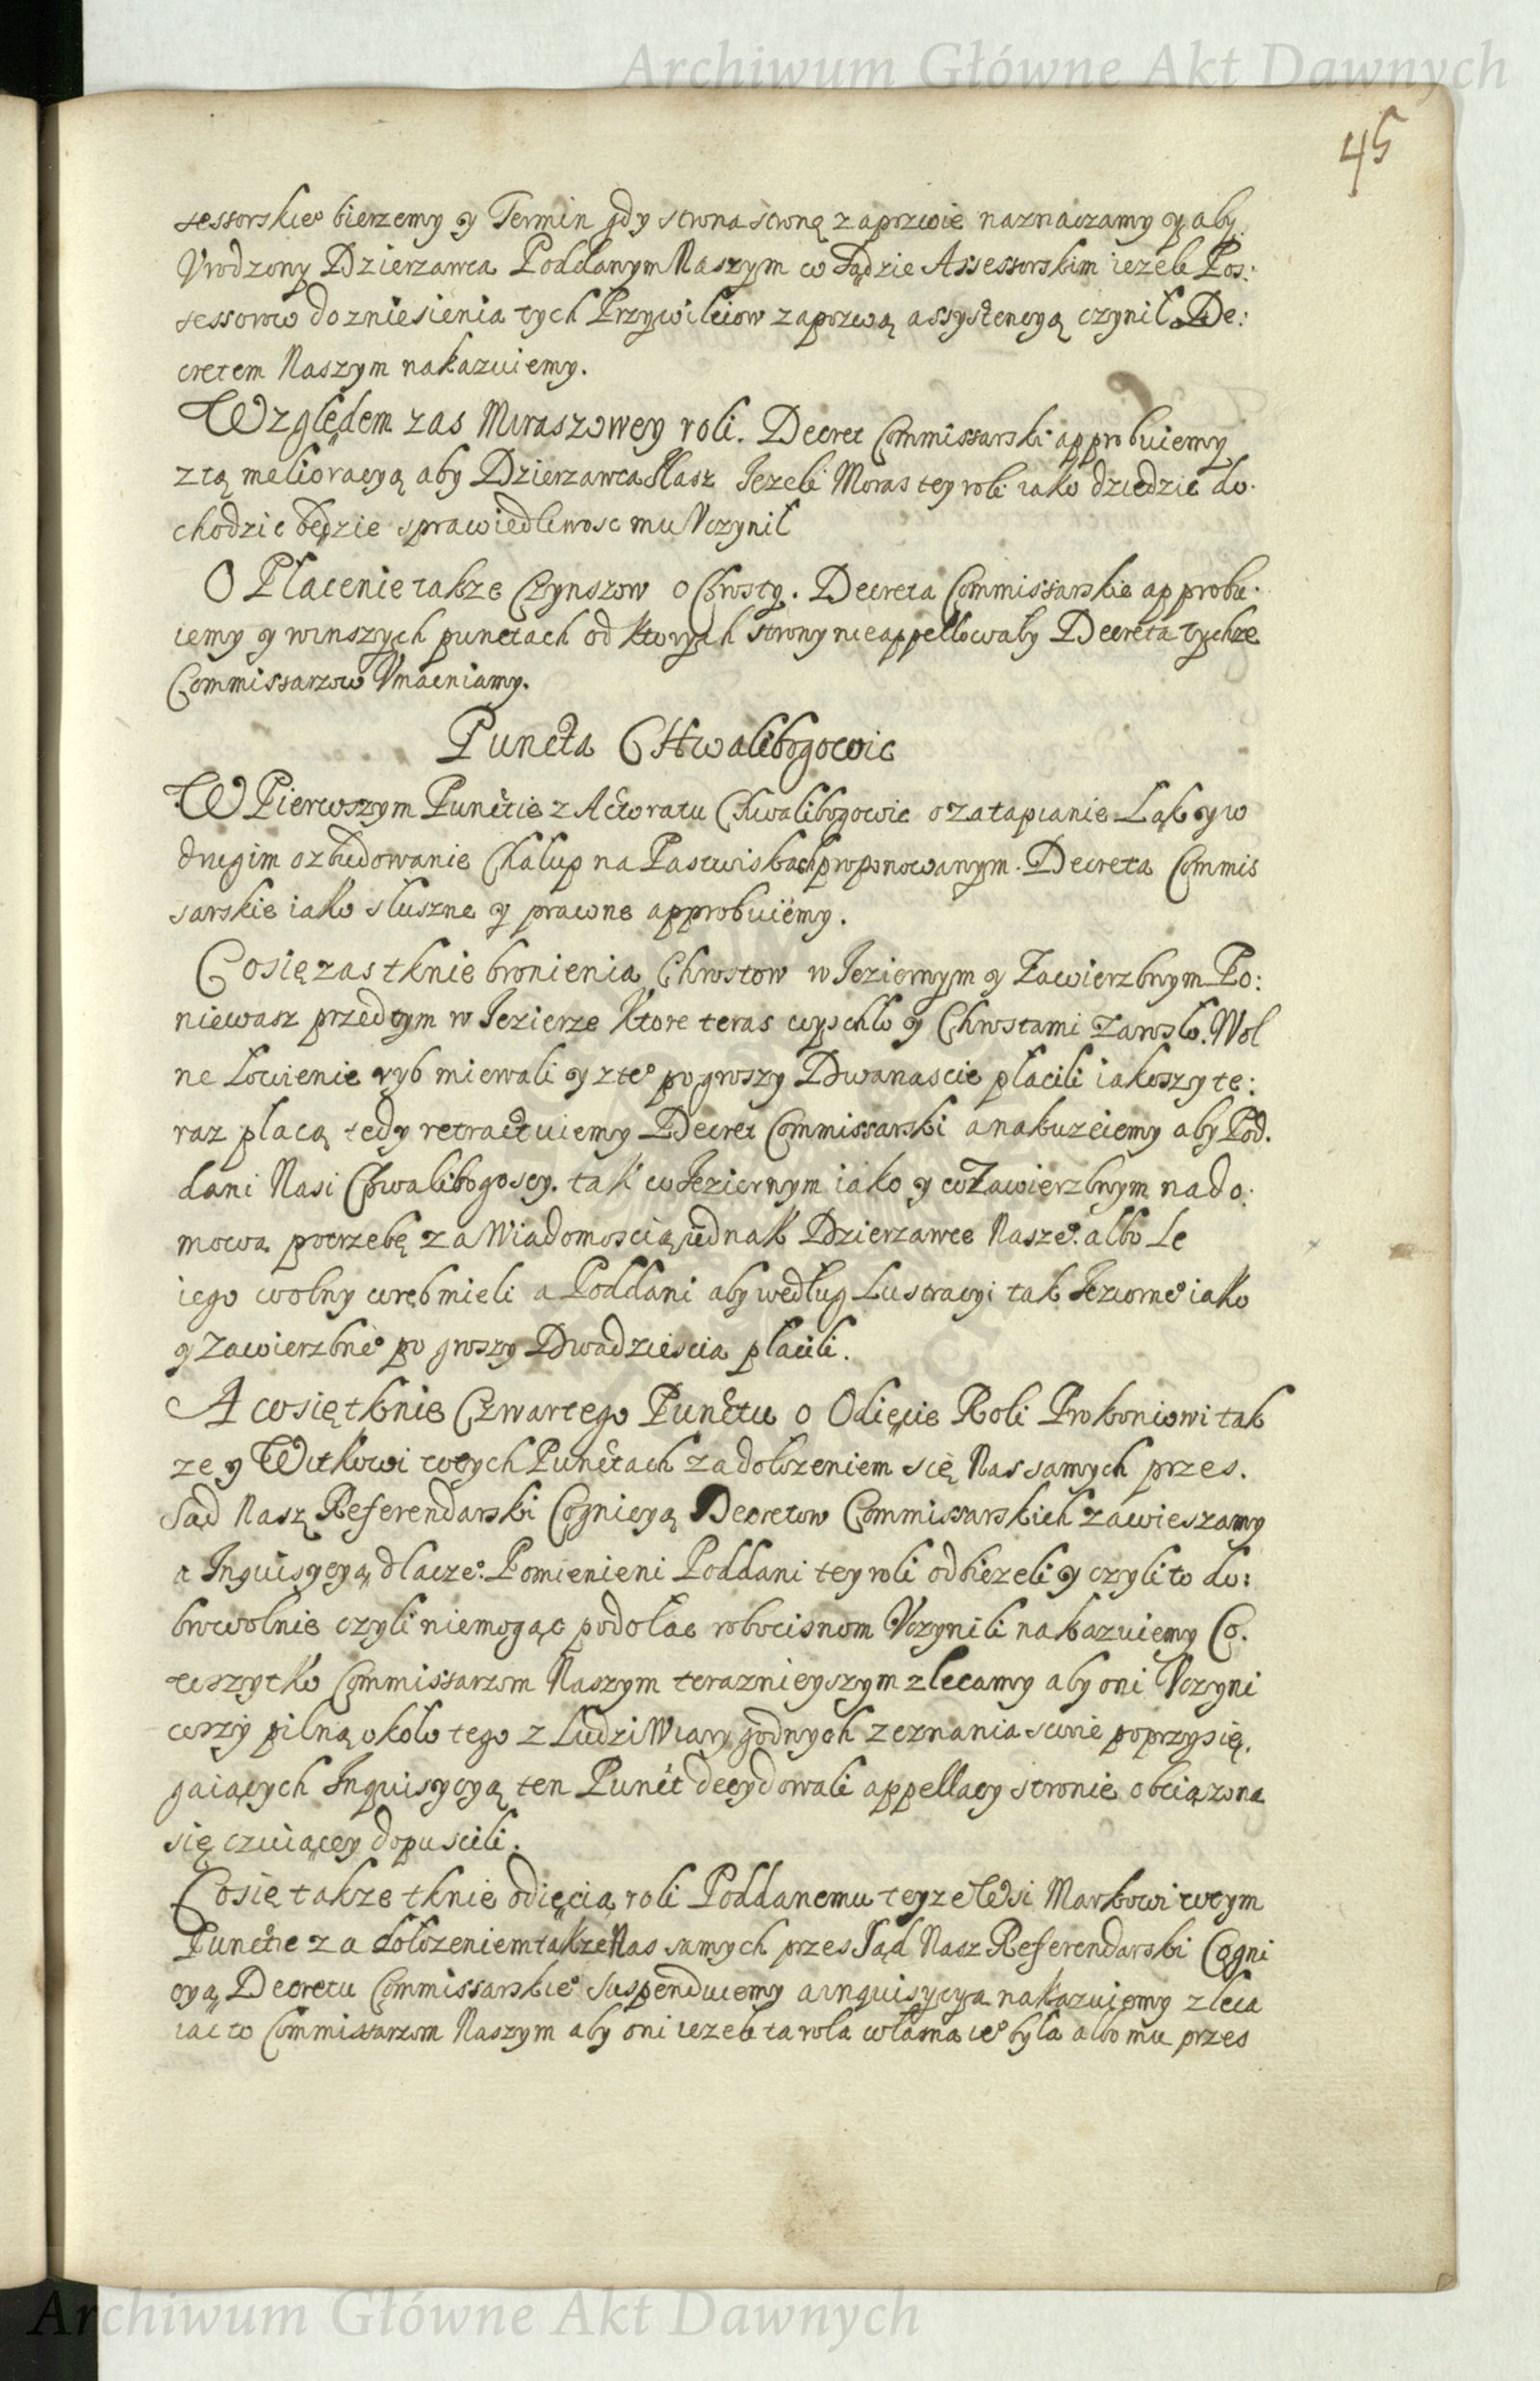 Archiwum Główne Akt Dawnych
45
sessorskieo bierzemy y Termin gdy strona stronę zapozwie naznaczamy y aby
Vrodzony Dzierzawca Poddanym Naszym w Sądzie Assessorskim iezeli Pos:
sessorow do zniesienia tych Przywileiow zapozwą assystencyą czynił De:
cretem Naszym nakazuiemy.
Względem zas Muraszowey roli. Decret Commissarski approbuiemy
z tą melioracyą aby Dzierzawca Nasz Jezeli Moras tey roli iako dziedzic do.
chodzic będzie sprawiedliwosc mu Vczynił
O Płacenie takze Czynszow o Chrosty. Decreta Commissarskie approbu.
iemy y winszych punctach od ktorych strony nie appellowały Decreta tychze
Commissarzow Vmacniamy.
Puncta CHwalibogowic
W Pierwszym Puncie z Actoratu Chwalibogowic o zatapianie Łąk y w
drugim o zbudowanie Chalup na Pastwiskach proponowanym. Decreta Commis
sarskie iako słuszne y prawne approbuiemy.
Co się zas tknie bronienia Chrostow w Jeziernym y Zawierzbnym Po:
niewasz przedtym w Jezierze Ktore teras wyschło y Chrostami zarosło. Wol
ne Łowienie ryb miewali y z te° po groszy Dwanascie płacili iakoszy te:
raz płacą tedy retractuiemy Decret Commissarski a nakuzeiemy aby Pod.
dani Nasi Chwalibogoscy. tak w Jeziernym iako y w Zawierzbnym na do.
mową potrzebę za Wiadomoscią iednak Dzierzawce Nasze°. albo Le
iego wolny wręb mieli a Poddani aby według Lustracyi tak Jeziorne° iako
y Zawierzbne° po groszy Dwadziescia płacili.
A co się tknie Czwartego Punctu o Odięcie Roli Prokoniowi tak
ze y Witkowi w tych Punctach za dołozeniem się Nas samych przes.
Sąd Nasz Referendarski Cognicyą Decretow Commissarskich zawieszamy
a Inquisycyą dlacze°: Pomienieni Poddani tey roli odbiezeli y czyli to do:
browolnie czyli niemogąc podołac robocisnom Vczynili nakazuiemy Co.
wszytko Commissarzom Naszym teraznieyszym zlecamy aby oni Vczyni
wszy pilną około tego z Ludzi Wiary godnych zeznania swoie poprzysię.
gaiących Inquisycyą ten Punct decydowali appellacy stronie obciązona
się czuiącey dopuscili.
Co się takze tknie odięcia roli Poddanemu teyze Wsi Markowi w tym
Puncie za dołozeniem takze Nas samych przes Sąd Nasz Referendarski Cogni
cyą Decretu Commissarskie° suspenduiemy a inquisycya nakazuiemy zleca
iac to Commissarzom Naszym aby oni iezeli ta rola własna ie° była albo mu przes
Archiwum Główne Akt Dawnych